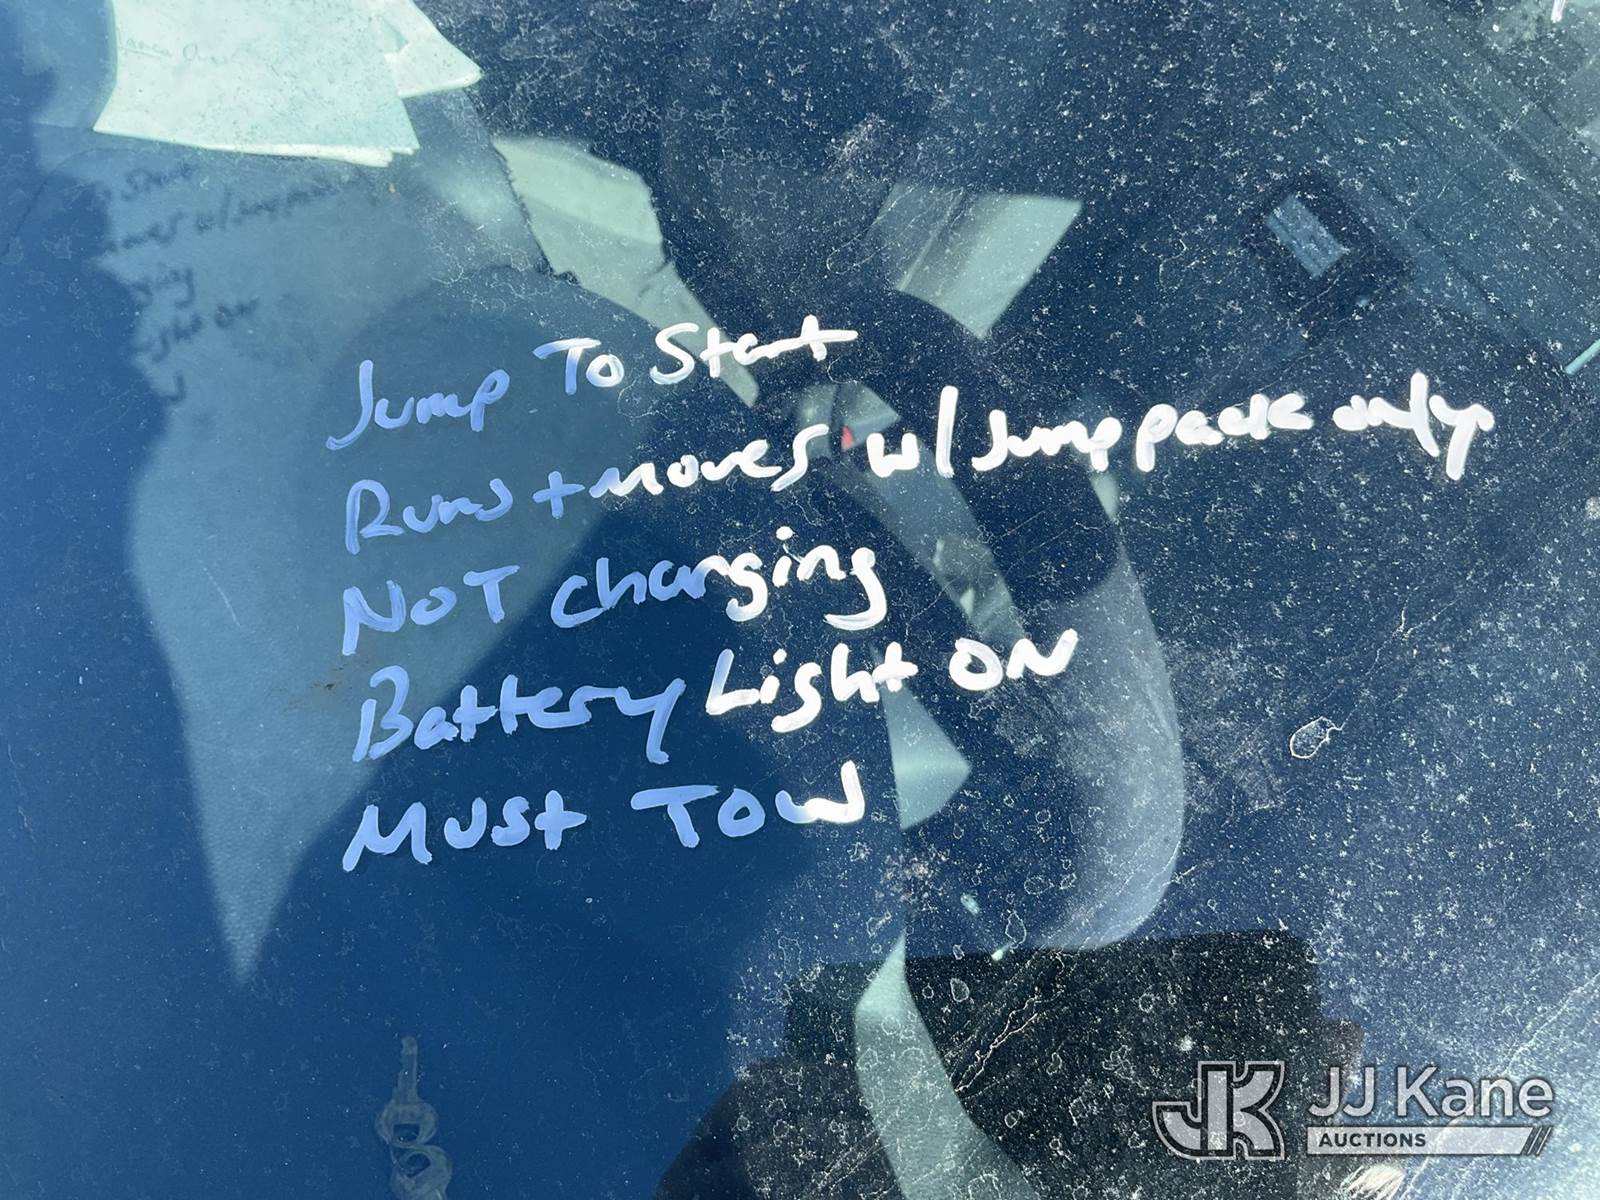 Jump To Start
Runs + moves w/ Jump pack only.
NOT charging
Battery Light ON
Must TOW
JJ Kane
AUCTIONS